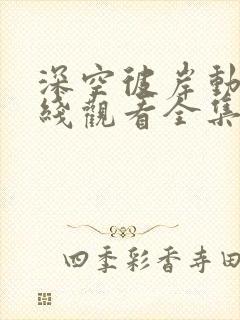 深空彼岸動
綫觀看全集
四季彩香寺田